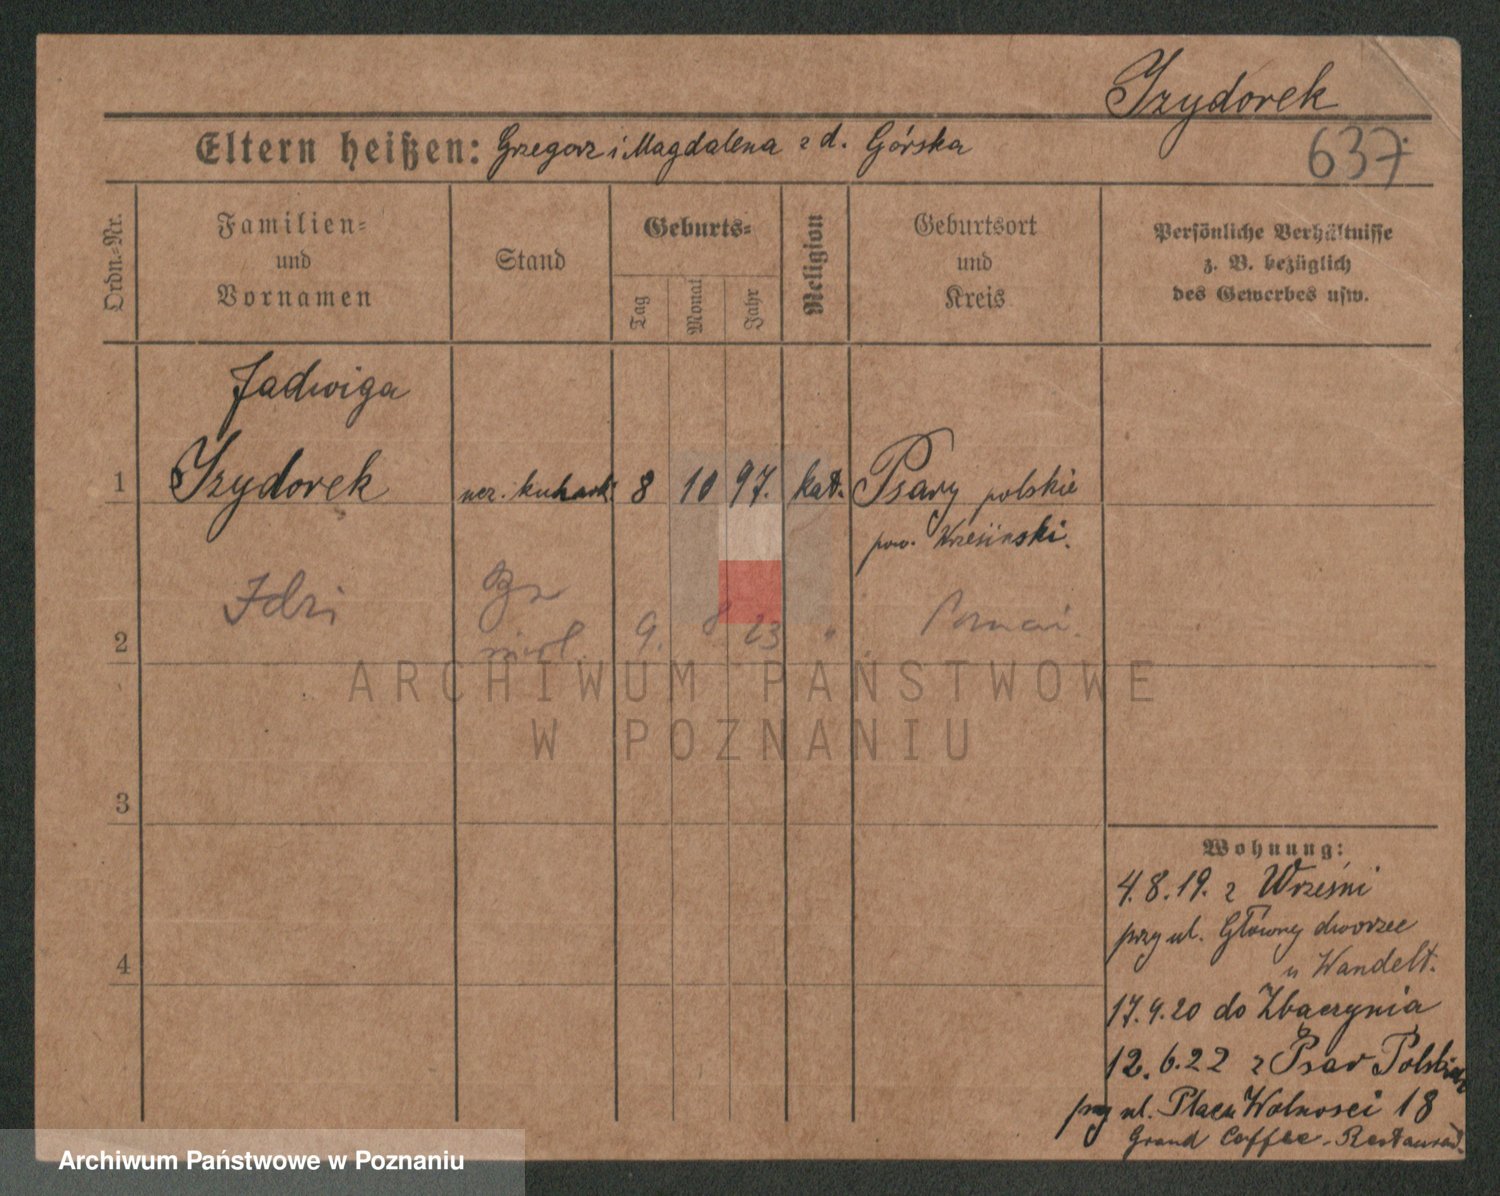 Izydorek
637.
Eltern heißen: Grzegorz i Magdalena z d. Górska
Ordn.-Nr.
Familien= und Vornamen
Stand
Geburts=
Tag
Monat
Jahr
Religion
Geburtsort und Kreis
Persönliche Verhältnisse
z. B. bezüglich
des Gewerbes usw.
Jadwiga
1 Izydorek 8 10 97. kat. Psary polskie
pow. Wrzesiński.
2 9. 8 23 "
ARCHIWUM PAŃSTWOWE
W POZNANIU
3
4
Wohnung:
4.8.19. z Wrześni
przy ul. Główny dworzec
u Wandelt.
17.9.20 do Zbączynia
12.6.22 z Psar Polskich
przy ul. Placu Wolnosci 18
Grand Caffee - Restaurad.
Archiwum Państwowe w Poznaniu